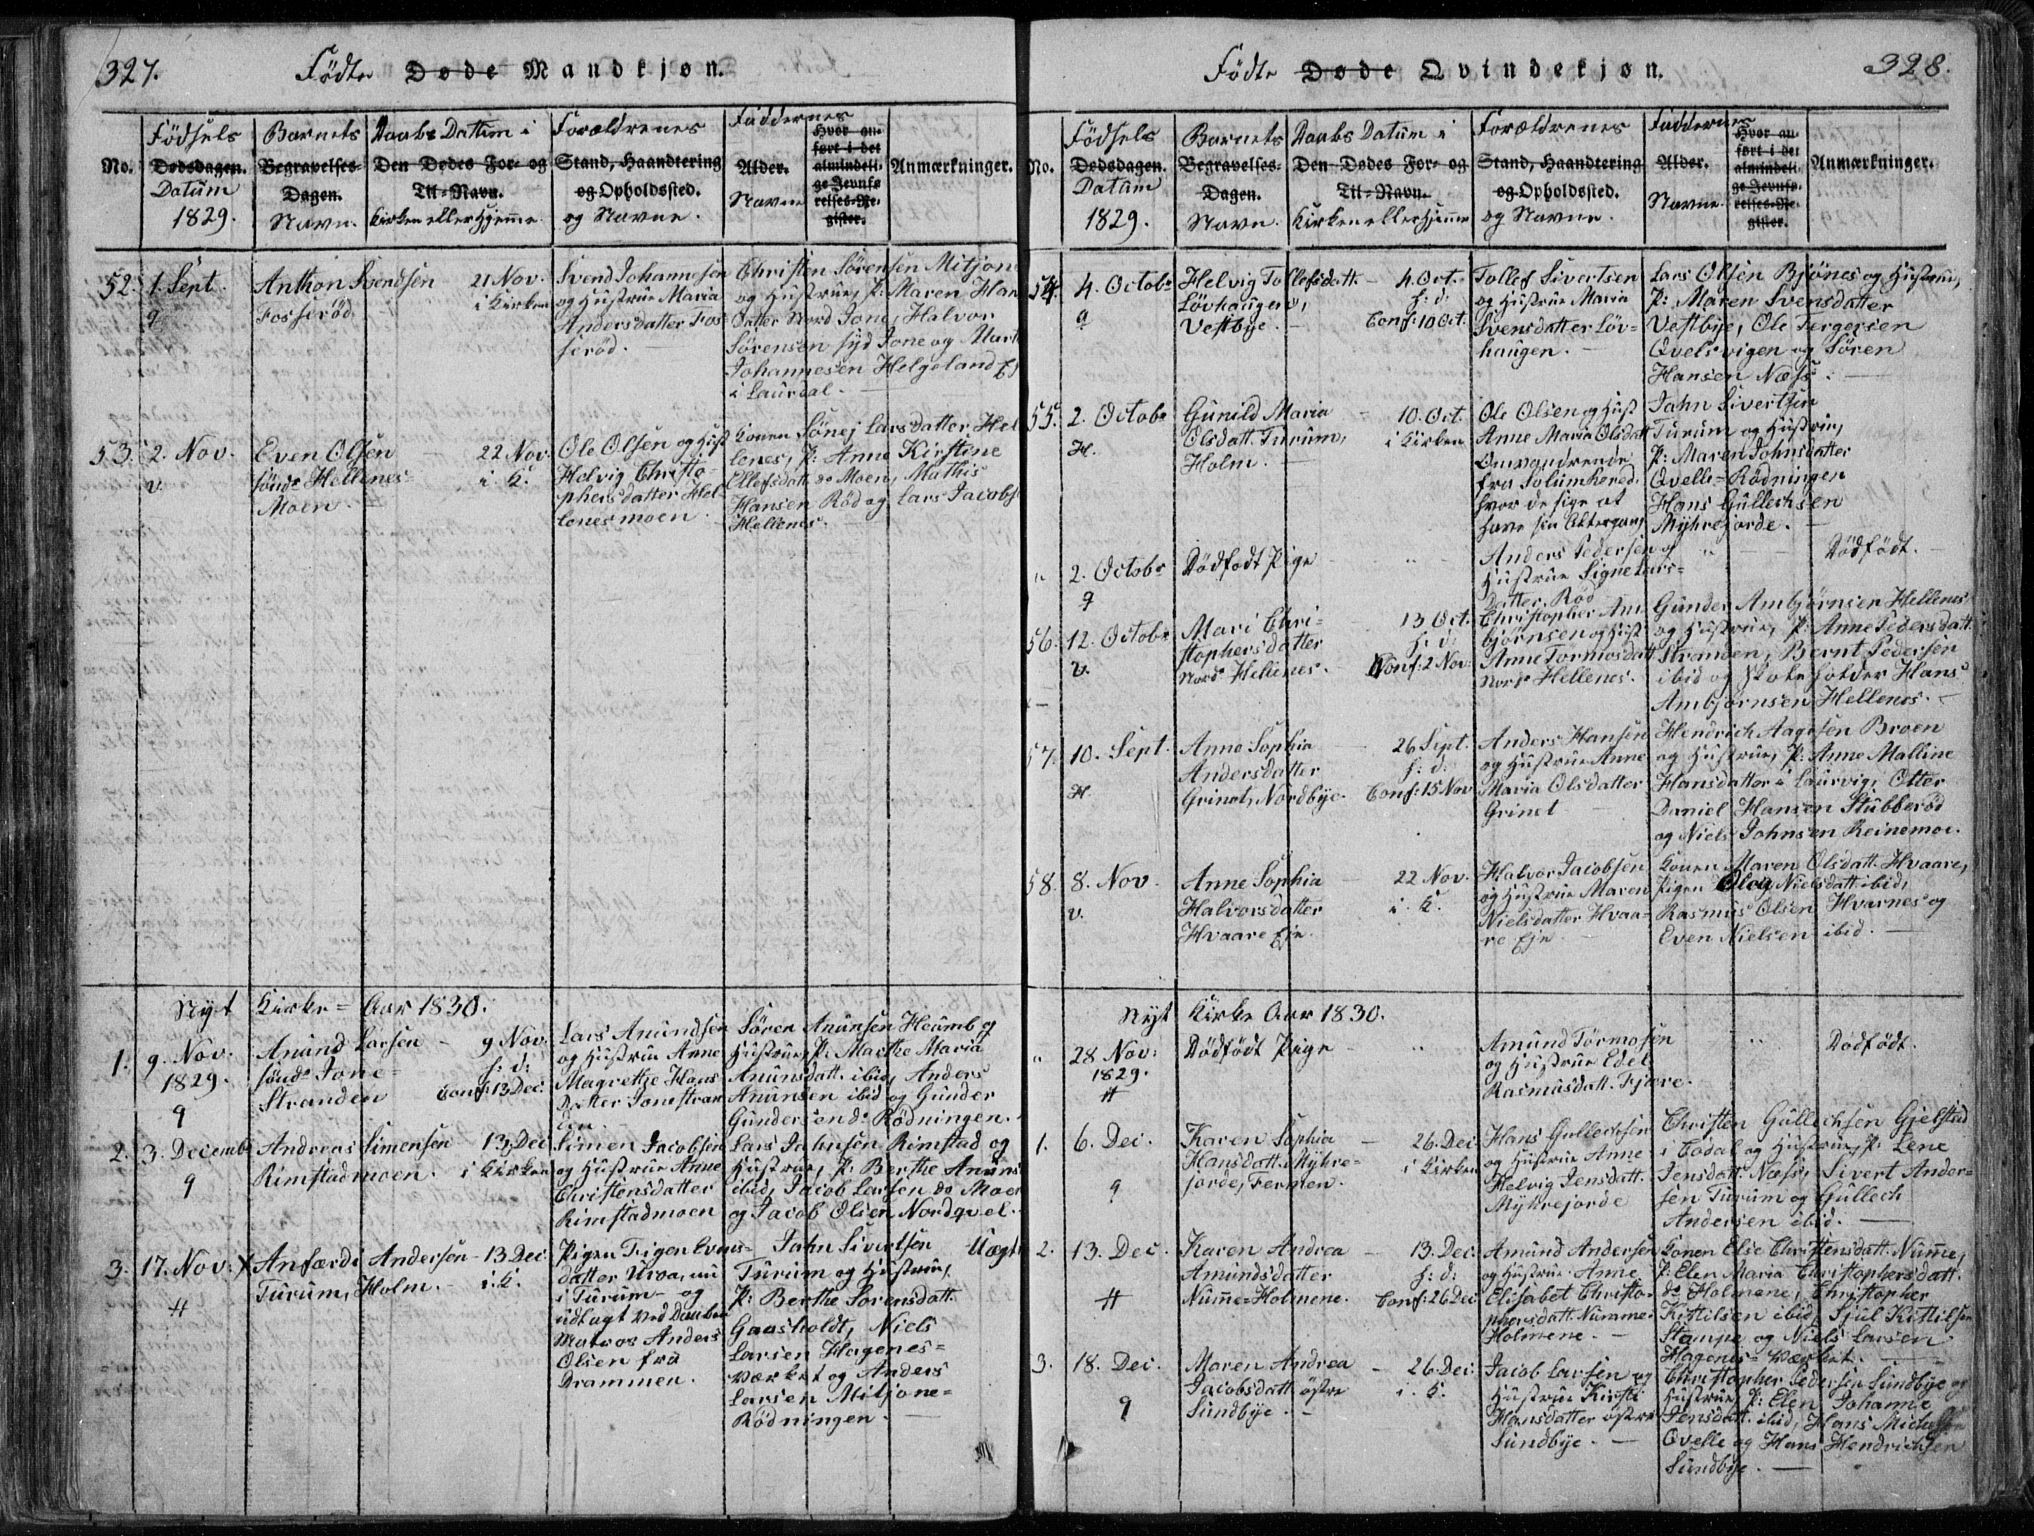 327.
Födte Døde Mandkjøn.
No.
Födsels
Dødsdagen.
Datum
1829.
Barnets
Begravelses-
Dagen.
Navn.
Daabs Datum i
Den Dødes For- og
Til-Navn.
Kirken eller Hjemme
Forældrenes
Stand, Haandtering
og Opholdssted.
og Navne.
Faddernes
Alder.
Navne
Hvor an-
ført i det
almindeli-
ge Jevnfø-
relses-Re-
gister.
Anmærkninger.
52.
1. Sept.
9
Anthon Svendsen
Fosserød
21 Nov.
i Kirken
Svend Johannesen
og Hustrue Maria
Andersdatter Fos-
serød.
Christen Sørensen Mitjon
og Hustrue, P: Maren Han
Datter Nord Jone, Halvor
Sörensen Syd Jone og Mart
Johannesen Helgeland
i Laurdal.
53.
2. Nov.
v.
Even Olsen
sönd: Hellenes-
Moen.
22 Nov.
i. K.
Ole Olsen og Hust
Helvig Christo-
phersdatter Hel-
lenesmoen.
Konen Sönej Larsdatter Hel
lenes, P: Anne Kirstine
Ellefsdatt. do Moen, Mathis
Hansen Rød og Lars Jacobs
Hellenes.
Nyt Kirke- Aar 1830.
1.
9. Nov.
1829.
9
Anund Larsen
sönd: Jone-
Stranden
9 Nov.
h: d:
Conf: 13 Dec.
Lars Anundsen
og Hustrue Anne
Magrethe Hans
Datter Jonestran
den.
Sören Anunsen Heumb og
Hustrue, P: Marthe Maria
Anunsdatt. ibid, Anders
Anunsen ibid og Gunder
Gundersen do Rødningen.
2.
3. Decemb
9
Andreas Simensen
Rimstadmoen.
13 Dec
i Kirken
Simen Jacobsen
og Hustrue Anne
Christensdatter
Rimstadmoen
Lars Jahnsen Rimstad og
Hustrue, P: Berthe Anuns
ibid, Jacob Larsen do Moen
og Jacob Olsen Nordqvel.
3.
17. Nov: X
H
Anfærdi Andersen
Turum, Holm.
13 Dec
i. K.
Pigen Sigen Evens-
datter Urva, nu
i Turum- og
udlagt ved Daaben
Matros Anders
Olsen fra
Drammen.
Jahn Sivertsen
Turum og Hustrue,
P: Berthe Sörensdatt.
Gaasholdt, Niels
Larsen Hagenes-
værket og Anders
Larsen Mitjone-
Rödningen.
Uægte
328.
Födte Døde Qvindekjøn.
No.
Födsels
Dødsdagen.
Datum
1829.
Barnets
Begravelses-
Dagen.
Navn.
Daabs Datum i
Den Dødes For- og
Til-Navn.
Kirken eller Hjemme
Forældrenes
Stand, Haandtering
og Opholdssted.
og Navne.
Faddernes
Alder.
Navne.
Hvor an-
ført i det
almindeli-
ge Jevnfø-
relses-Re-
gister.
Anmærkninger.
54.
4. Octobr
9
Helvig Tollefsdatt.
Lövhaugen,
Vestbye.
4. Oct.
h: d:
Conf: 10 Oct.
Tollef Sivertsen
og Hustrue Maria
Svensdatter Löv-
haugen.
Lars Olsen Bjönes og Hustrue,
P: Maren Svensdatter
Vestbye, Ole Tergersen
Qvelsvigen og Sören
Hansen Næss.
55.
2. Octobr
H.
Gunild Maria
Olsdatt. Turum,
Holm.
10. Oct.
i Kirken
Ole Olsen og Hust
Anne Maria Olsdatt
Omvandrende
fra Solumhered.
hvor de sige at
have sin Attergang
Jahn Sivertsen
Turum og Hustrue,
P: Maren Johnsdatter
Qvelle-Rödningen
Hans Gullechsen
Myhrejorde.
"
2. Octobr
9
Dödfödt Pige
"
Anders Pedersen og
Hustrue Signe Lars-
Datter, Rød
"
Dödfödt.
56.
12. Octobr
v.
Mari Chri-
stophersdatter
Nord: Hellenes.
13 Oct.
h: d:
Conf: 2 Nov:
Christopher Am-
bjørnsen og Hust
Anne Tormosdatt
Nord: Hellenes.
Gunder Ambjørnsen Hellenes
og Hustrue, P: Anne Pedersdatt.
Stranden, Bernt Pedersen
ibid og Hans
Ambjørnsen Hellenes.
57.
10. Sept.
H.
Anne Sophia
Andersdatter
Grinet, Nordbye.
26 Sept.
h: d:
Conf: 15 Nov
Anders Hansen
og Hustrue Anne
Maria Olsdatter
Grinet
Hendrich Aagesen Broen
og Hustrue, P: Anne Malline
Hansdatter i Laurvig, Otter
Daniel Hansen Stubberöd
og Niels Johnsen Reinemoe.
58.
8. Nov.
v.
Anne Sophia
Halvorsdatter
Hvaare Eje.
22 Nov.
i. K.
Halvor Jacobsen
og Hustrue Maren
Nielsdatter Hvaa-
re Eje
Konen Maren Olsdatt. Hvaare,
Pigen Oleg Nielsdatt. ibid,
Rasmus Olsen Hvarnes og
Even Nielsen ibid.
Nyt Kirke Aar 1830.
"
28 Nov:
1829.
H
Dödfödt Pige
"
Amund Tormosen
og Hustrue Edel
Rasmusdatt. Fjære.
"
Dödfödt.
1.
6. Dec.
9
Karen Sophia
Hansdatt. Myhre-
jorde, Fermen.
26. Dec.
i Kirken
Hans Gullechsen
og Hustrue Anne
Helvig Jensdatt.
Myhrejorde
Christen Gullechsen Gjelstad
i Lodal og Hustrue, P: Lene
Jensdatt. Næss, Sivert Ander-
sen Turum og Gullech
Andersen ibid.
2.
13. Dec.
H
Karen Andrea
Amundsdatter
Numme-Holmene.
13. Dec.
h: d:
Conf: 26 Dec
Amund Andersen
og Hustrue Anne
Elisabet Christo-
phersdatt. Numme-
Holmene.
Konen Else Christensdatt. Numme,
P: Elen Maria Christophersdatt.
do Holmene, Christopher
Kittilsen ibid, Sjul Kittilsen
Stampe og Niels Larsen
Hagenes-værket.
3.
18. Dec.
9
Maren Andrea
Jacobsdatt. östre
Sundbye.
26 Dec.
i. K.
Jacob Larsen og
Hustrue Kirsti
Hansdatter östre
Sundbye.
Christopher Pedersen Sundbye og
Hustrue, P: Elen Johanne
Jensdatt. ibid, Hans Michelsen
Qvelle og Hans Hendrichsen
Sundbye.